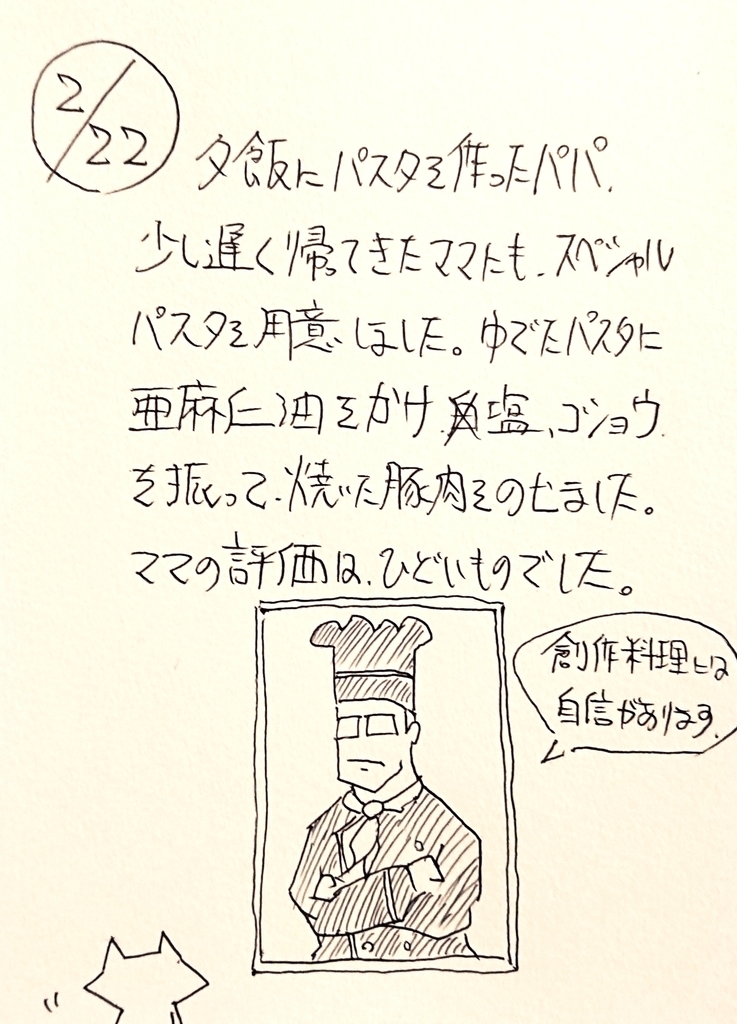 2/22
夕飯にパスタを作ったパパ、
少し遅く帰ってきたママにも、スペシャル
パスタを用意しました。ゆでたパスタに
亜麻仁油をかけ、塩、コショウ
を振って、焼いた豚肉をのせました。
ママの評価は、ひどいものでした。
創作料理には
自信があります。